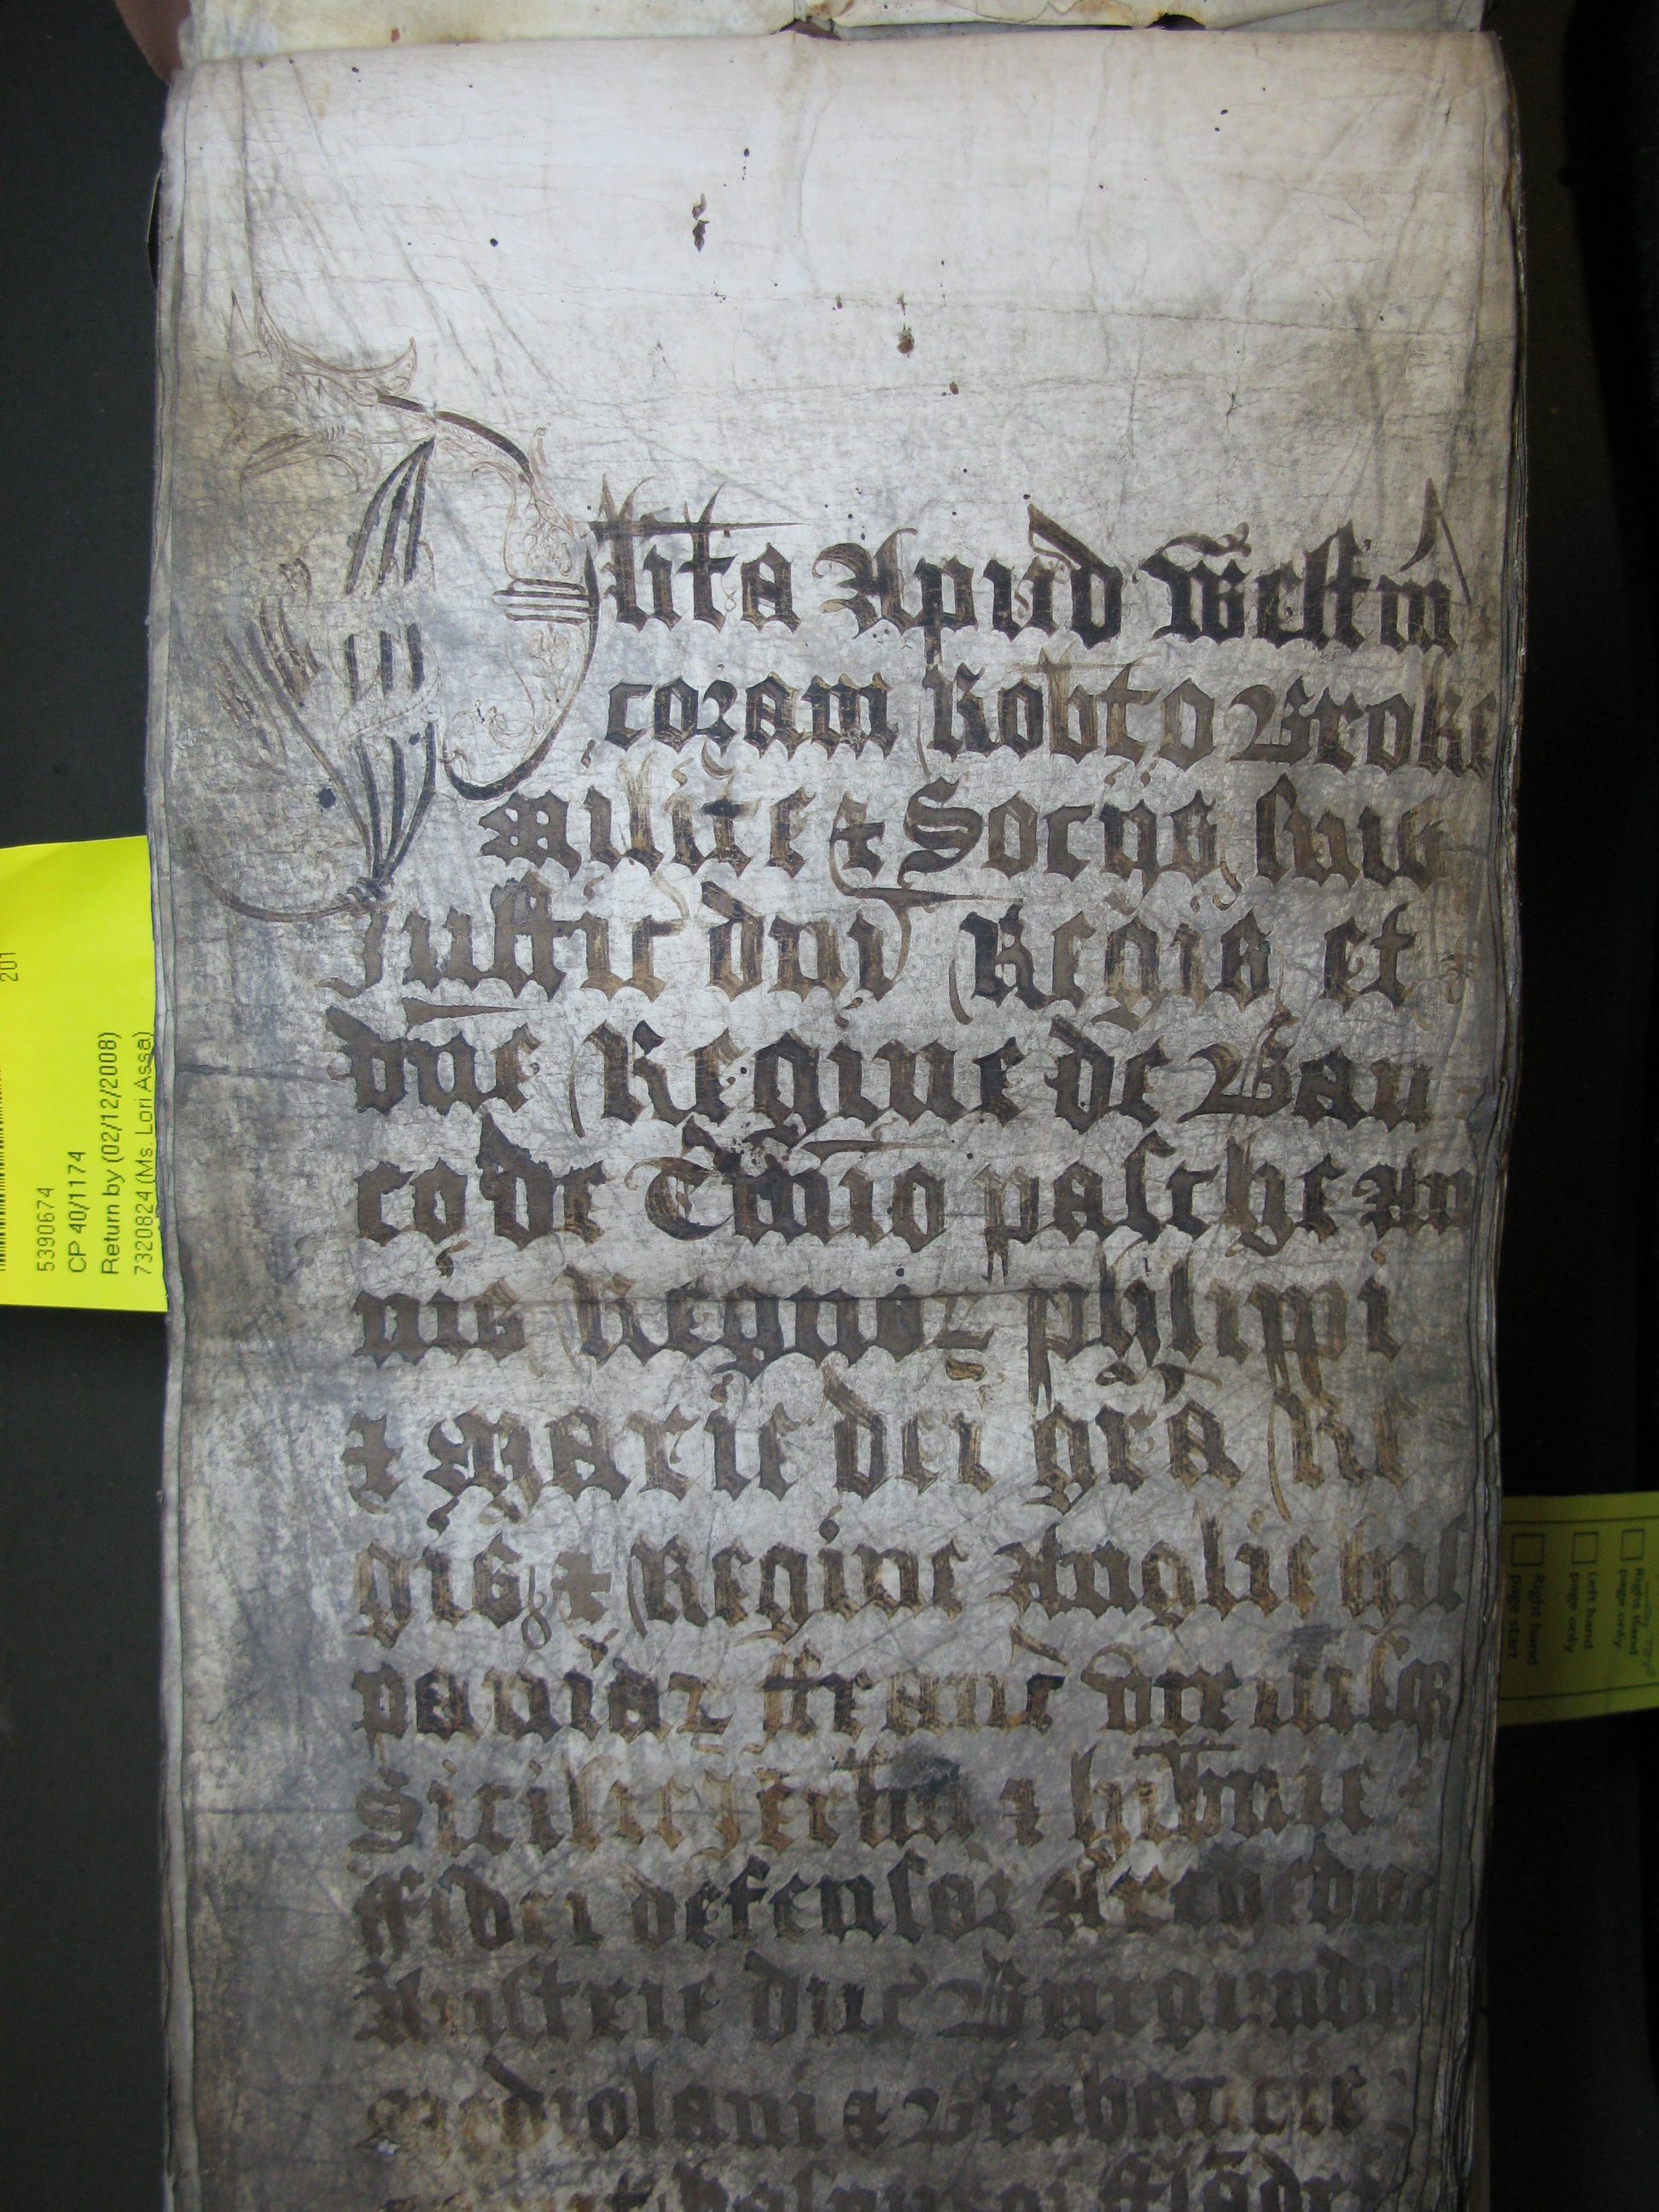 Plita Apud Westm
coram Robto Broke
milite & Socijs suis
Justic dni Regis et
dne Regine de Ban
co de Tmio pasche An
nis Regnoz philippi
& Marie dei gra Re
gis & Regine Anglie his
paniaz ffranc vtriusqz
Sicilie Jerlm & hibnie
ffidei defensoz Archiduc
Austrie duc Burgundie
mediolani & Brabancie
haspurgi fflandr
201
5390674
CP 40/1174
Return by (02/12/2008)
7320824 (Ms. Lori Assa)
Right hand
page only
Left hand
page only
Right hand
page start